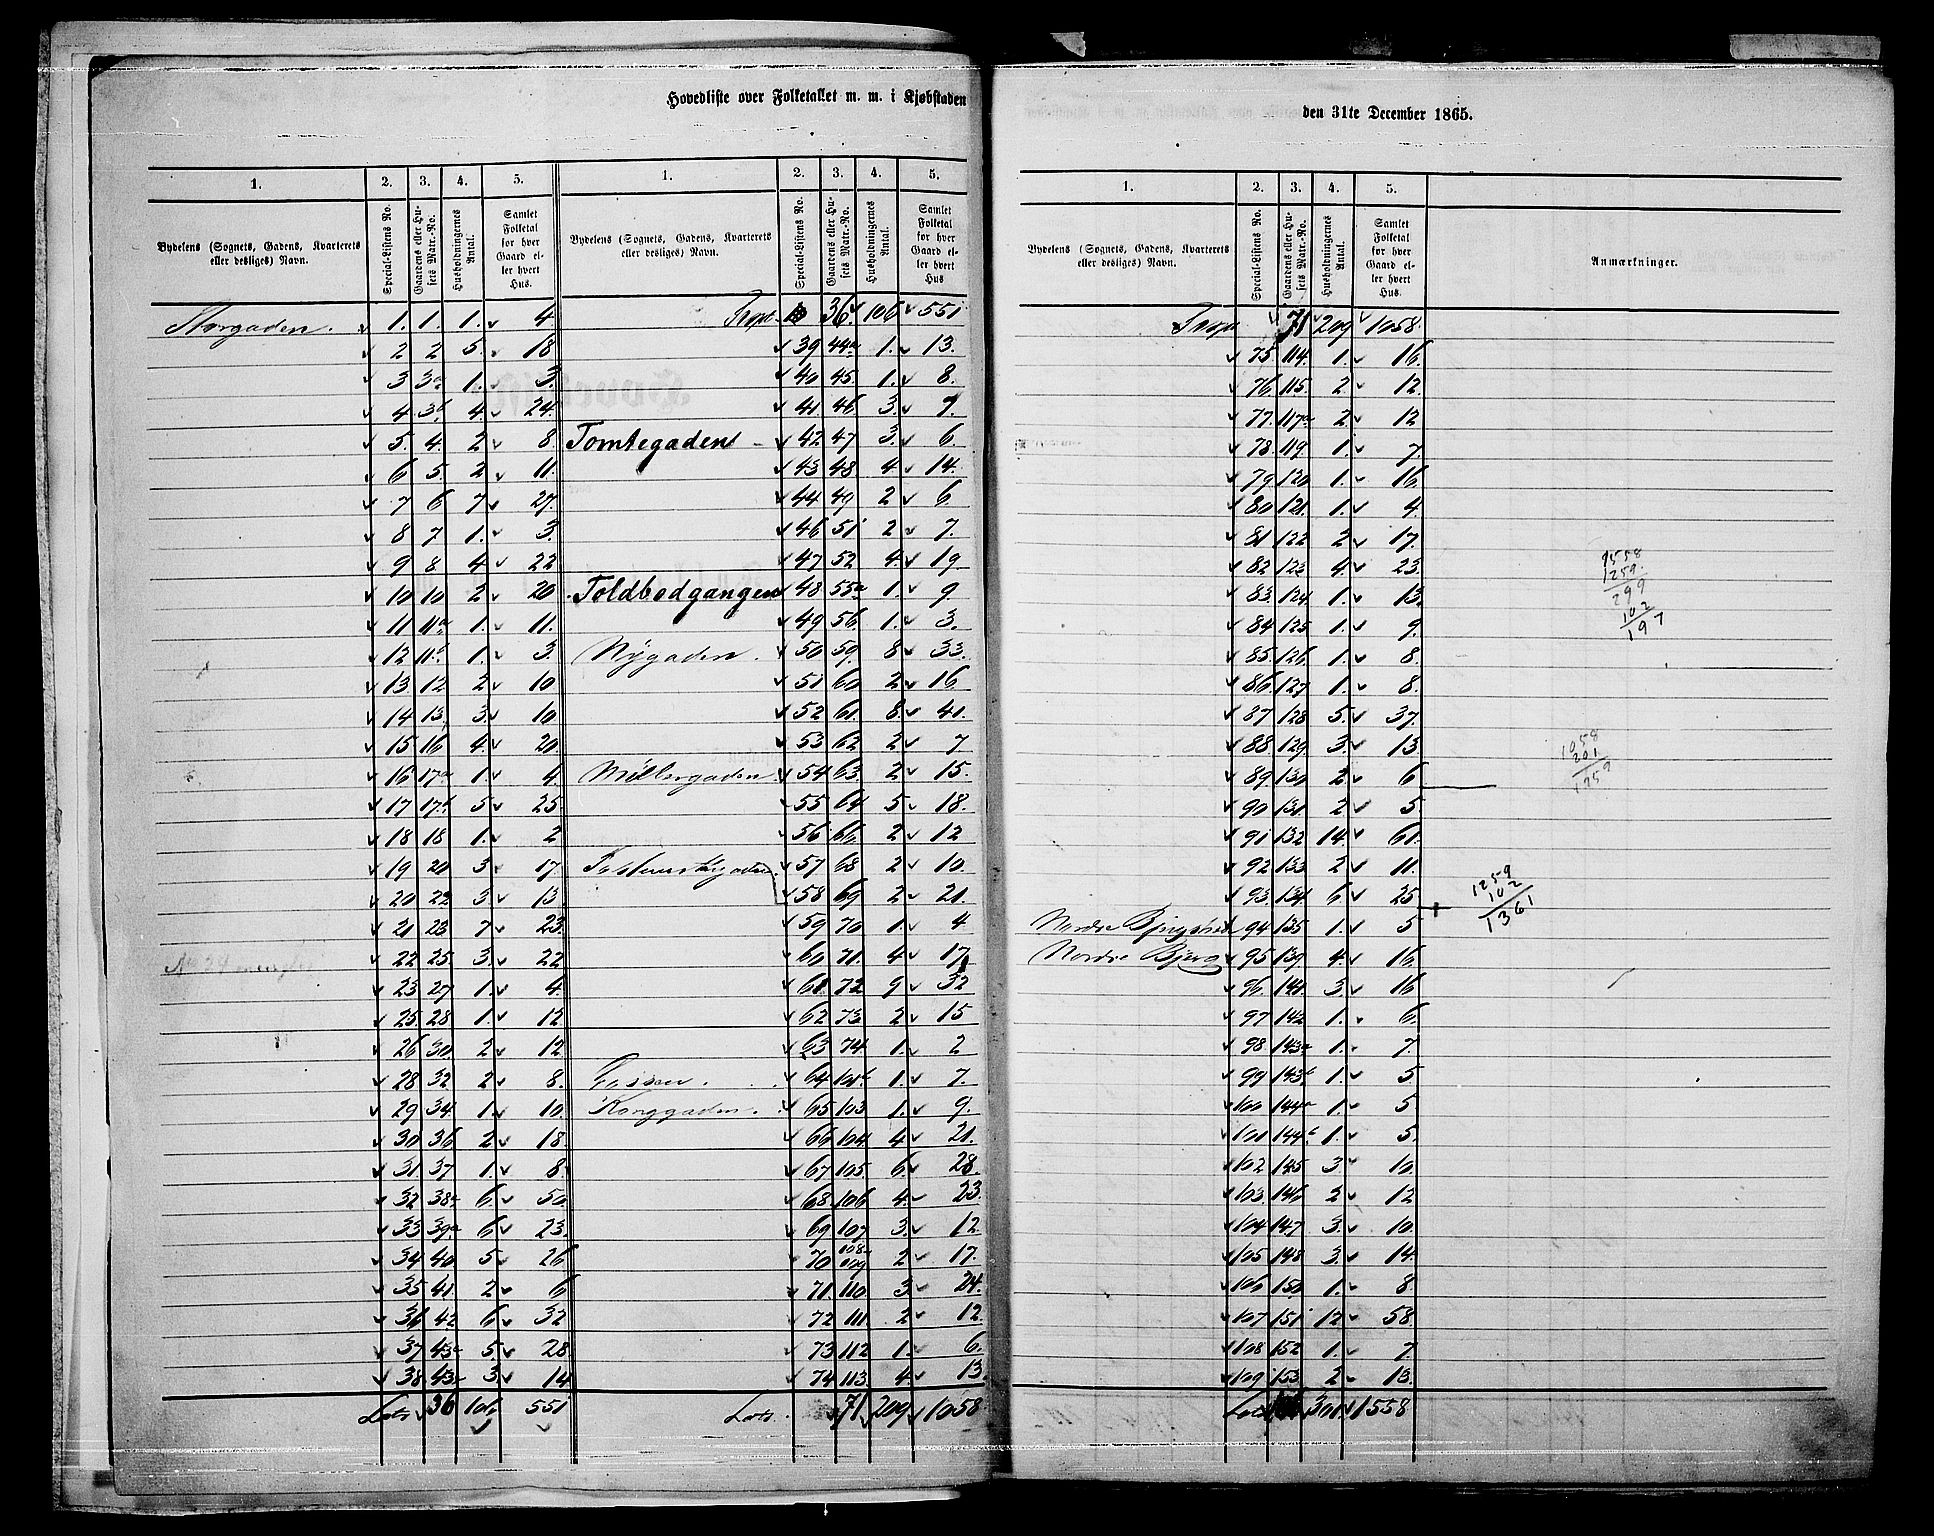 Hovedliste over Folketallet m. m. i Kjøbstaden
1. 2. 3. 4. 5. 1. 2. 3. 4. 5.
Bydelens (Sognets, Gadens, Kvarterets eller desliges) Navn. Special-Listens No. Gaardens eller Husets Matr.-No. Husholdningernes Antal. Samlet Folketal for hver Gaard eller hvert Hus. Bydelens (Sognets, Gadens, Kvarterets eller desliges) Navn. Special-Listens No. Gaardens eller Husets Matr.-No. Husholdningernes Antal. Samlet Folketal for hver Gaard eller hvert Hus.
Storgaden. 1. 1. 1. 4 Trspt. 36. 106 551
2 2 5. 18 39 44a 1. 13.
3 3a 1. 3. 40 45. 1. 8.
4 3b 4. 24. 41 46. 3. 7.
5. 4. 2 8 Tomtegaden 42 47 3. 6.
6 5. 2 11. 43 48 4. 14.
7 6 7 27. 44 49 2 6.
8 7 1. 3. 46 51 2 7.
9 8 4 22 47 52 4. 19
10 10 2 20 Toldbodgangen 48 55a 1. 9
11 11a 1. 11. 49 56. 1. 3.
12 11b 1. 3. Nygaden. 50 59. 8 33.
13 12 2 10 51 60 2 16
14 13 3. 10 52 61. 8. 41.
15 16 4. 20 53 62 2 7
16 17a 1. 4. Møllergaden. 54 63. 2 15.
17 17b 5 25. 55 64 5 18.
18 18 1. 2 56 66. 2 12
19 20 3 17. 57 68 2 10.
20 22 3 13 58 69 2 21.
21 23 7 23. 59 70 1. 4
22 25. 3. 22 60 71. 4 17
23 27 1. 4. 61 72 9 32
25. 28 1. 12 62 73 2 15
26 30. 2 12 63 74 1. 2
28 32 2 8. Fossen. 64 101b 1. 7.
29 34 1. 10. Konggaden. 65 103 1. 9.
30 36 2 18 66 104 4 21.
31 37 1. 8 67 105. 6 28.
32 38a 6. 50. 68 106 4. 23.
33 39a 6 23. 69 107 3. 12
34 40 5 26 70 108 109 2 17.
35 41. 2 6 71. 110 3 24.
36 42 6 32 72 111 2 12.
37 43a 5. 28 73 112 1. 6.
38 43 3 14 74 113. 4 13.
Lats 36 106 551 Lats. 71 209 1058
den 31te December 1865.
1. 2. 3. 4. 5.
Bydelens (Sognets, Gadens, Kvarterets eller desliges) Navn. Special-Listens No. Gaardens eller Husets Matr.-No. Husholdningernes Antal. Samlet Folketal for hver Gaard eller hvert Hus. Anmærkninger.
Trspt 71 209 1058.
75. 114. 1. 16.
76. 115. 2 12.
77. 117a 2. 12
78. 119 1. 7.
79 120 1. 16.
80 121. 1. 4.
81 122 2 17.
82 123 4. 23.
83. 124 1. 13.
84 125 1. 9.
85. 126. 1. 8.
86. 127. 1. 8.
87 128 5. 37.
88. 129. 3. 13
89 130 2 6
90 131 2 5
91 132 14. 61.
92 133 2 11.
93. 134 6 25
Nordre 94 135 1. 5
Nordre Bjerg 95 139 4. 16
96. 141. 3. 16
97 142 1. 6.
98 143a 1. 7.
99 143b 1. 5
100 144a 1. 5
101 144b 1. 5.
102 145 3 10
103. 146 2 12
104 147 3. 10
105 148 3. 14.
106 150 1. 8.
107 151 12 58.
108 152 1. 7.
109 153 2 13.
301 1558
1558
1259.
299
102
197
1058
201
1259
1259
102
1361